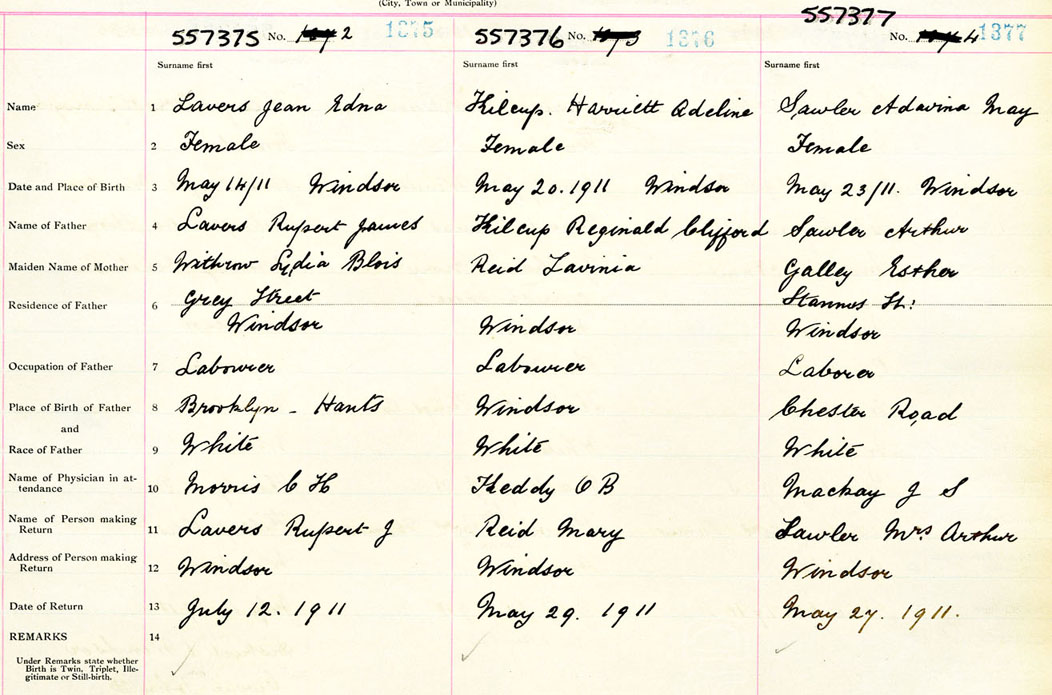 (City, Town or Municipality)
557375 No. 2 1875 557376 No. 1876 557377 No. 4 1877
Surname first Surname first Surname first
Name 1 Lavers Jean Edna Kilcup. Harriett Adeline Sawler Adavina May
Sex 2 Female Female Female
Date and Place of Birth 3 May 14/11 Windsor May 20.1911 Windsor May 23/11. Windsor
Name of Father 4 Lavers Rupert James Kilcup Reginald Clifford Sawler Arthur
Maiden Name of Mother 5 Withrow Lydia Blois Reid Lavinia Galley Esther
Residence of Father 6 Grey Street Stannus St:
Windsor Windsor Windsor
Occupation of Father 7 Labourer Labourer Laborer
Place of Birth of Father 8 Brooklyn - Hants Windsor Chester Road
and
Race of Father 9 White White White
Name of Physician in at-
tendance 10 Morris C H Keddy O B Mackay J S
Name of Person making
Return 11 Lavers Rupert J Reid Mary Sawler Mrs Arthur
Address of Person making
Return 12 Windsor Windsor Windsor
Date of Return 13 July 12. 1911 May 29. 1911 May 27. 1911.
REMARKS 14
Under Remarks state whether
Birth is Twin, Triplet, Ille-
gitimate or Still-birth.